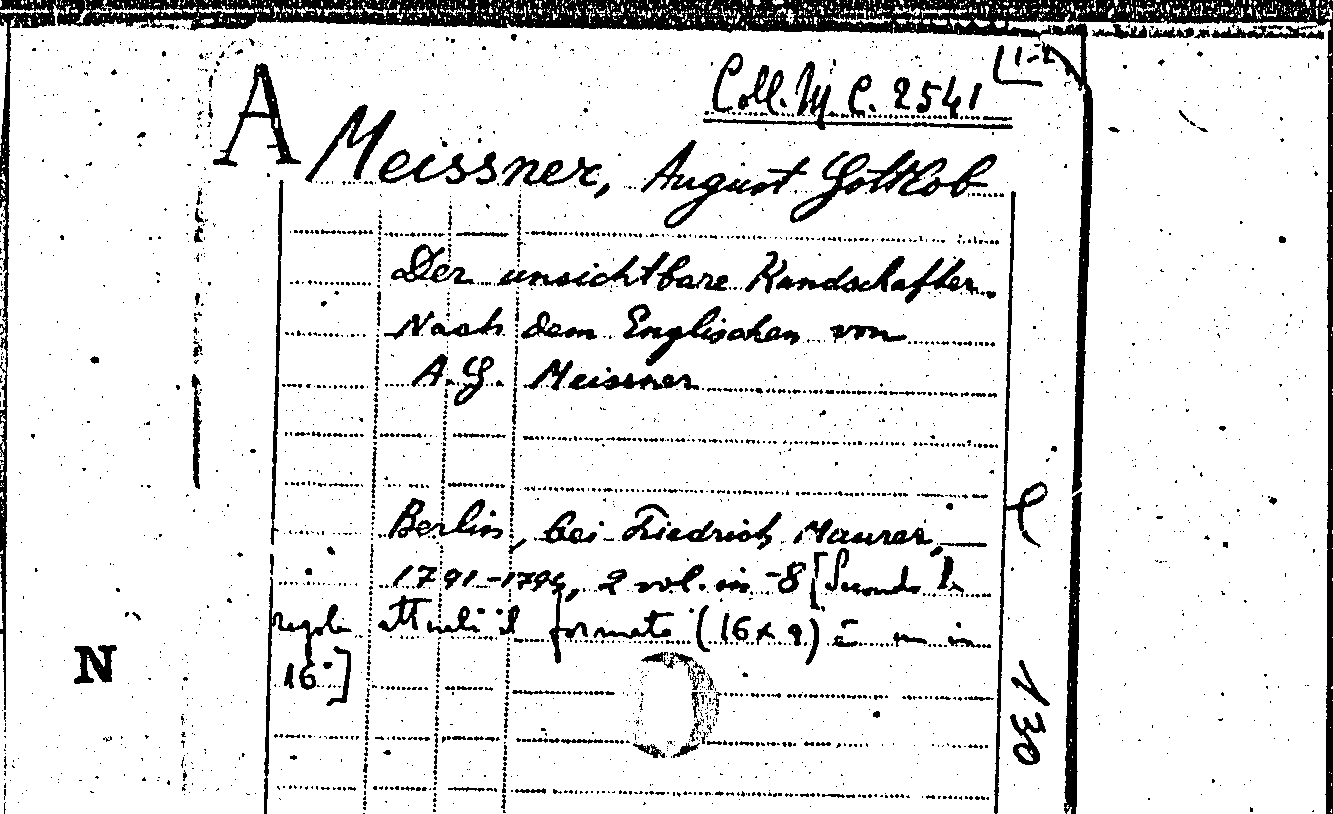 1-2
Coll. M C. 2541
A Meissner, August Gottlob
Der unsichtbare Kundschafter.
Nach dem Englischen von
A. G. Meissner
Berlin, bei Friedrich Maurer,
1791-1794, 2 vol. in -8 [Secondo le
regole attuali il formato (16 x 9) è un in
16°]
N
130